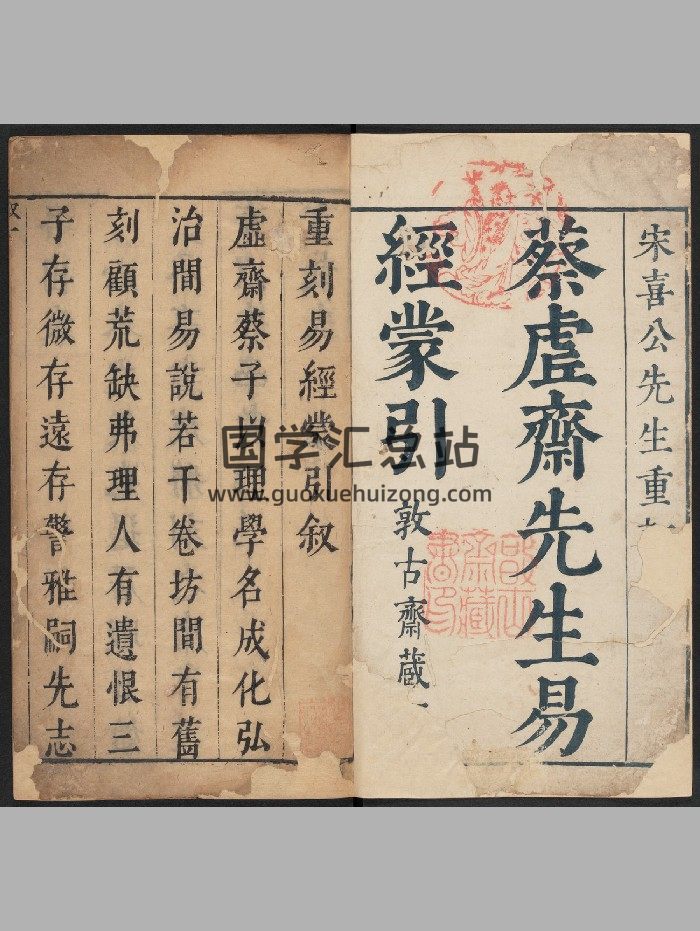 宋喜公先生重
蔡虛齋先生易
經蒙引
敦古齋藏
重刻易經蒙引叙
虛齋蔡子以理學名成化弘
治間易說若干卷坊間有舊
刻顧荒缺弗理人有遺恨三
子存微存遠存警雅嗣先志
国学汇总站
www.guoxuehuizong.com